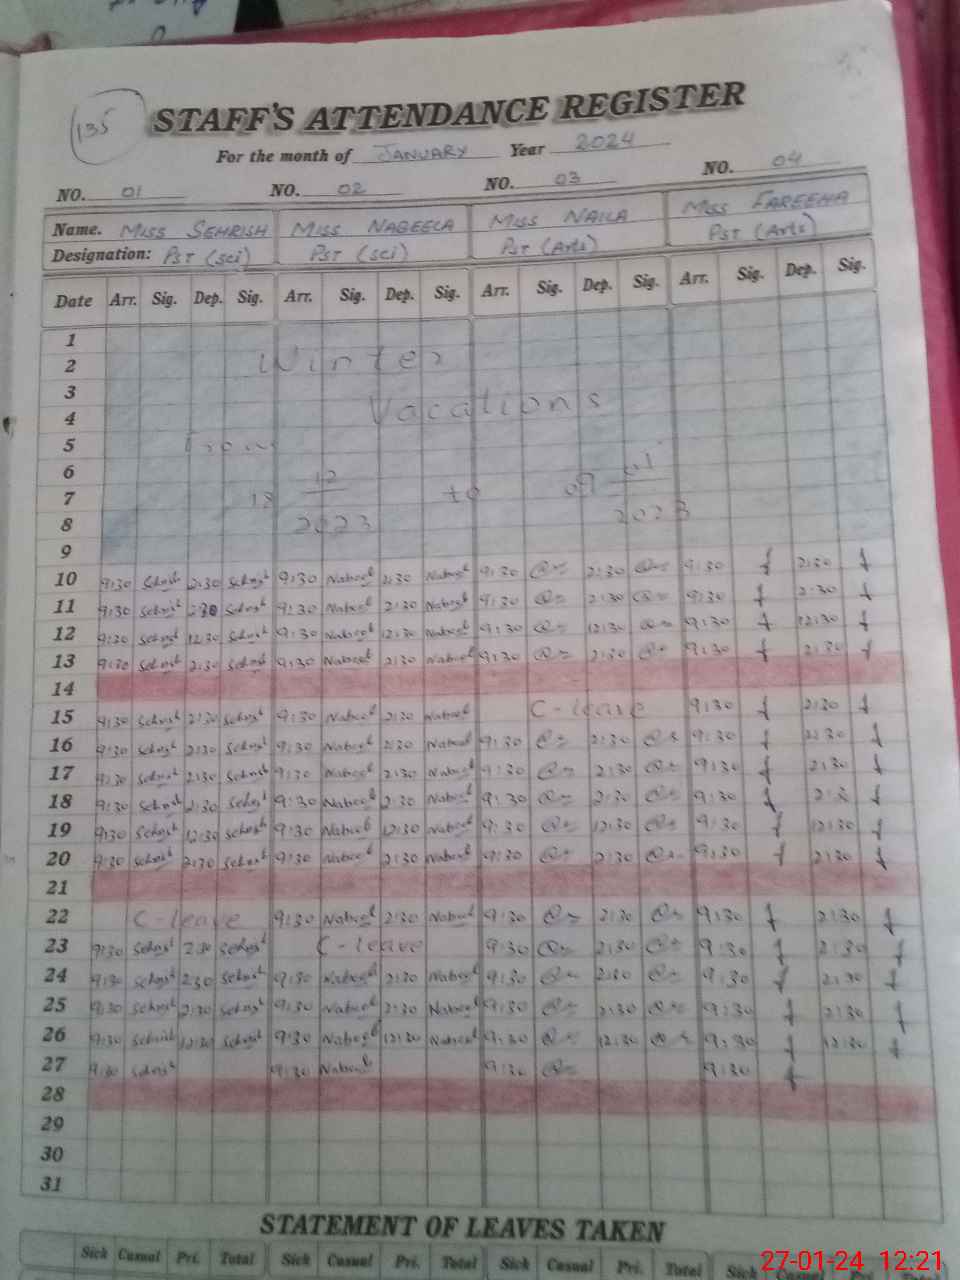 135
STAFF'S ATTENDANCE REGISTER
For the month of JANUARY Year 2024
NO. 01 NO. 02 NO. 03 NO. 04
Name. MISS SEHRISH MISS NABEELA MISS NAILA MISS FAREEHA
Designation: PST (Sci) PST (Sci) PST (Arts) PST (Arts)
Date Arr. Sig. Dep. Sig. Arr. Sig. Dep. Sig. Arr. Sig. Dep. Sig. Arr. Sig. Dep. Sig.
1
2 Winter
3
4 Vacations
5 From
6
7 18 12 2023 to 09 01 2023
8
9
10 9:30 Sehrish 2:30 Sehrish 9:30 Nabeel 2:30 Nabeel 9:30 2:30 9:30 2:30
11 9:30 Sehrish 2:30 Sehrish 9:30 Nabeel 2:30 Nabeel 9:30 2:30 9:30 2:30
12 9:30 Sehrish 12:30 Sehrish 9:30 Nabeel 12:30 Nabeel 9:30 12:30 9:30 12:30
13 9:30 Sehrish 2:30 Sehrish 9:30 Nabeel 2:30 Nabeel 9:30 2:30 9:30 2:30
14
15 9:30 Sehrish 2:30 Sehrish 9:30 Nabeel 2:30 Nabeel C-leave 9:30 2:30
16 9:30 Sehrish 2:30 Sehrish 9:30 Nabeel 2:30 Nabeel 9:30 2:30 9:30 2:30
17 9:30 Sehrish 2:30 Sehrish 9:30 Nabeel 2:30 Nabeel 9:30 2:30 9:30 2:30
18 9:30 Sehrish 2:30 Sehrish 9:30 Nabeel 2:30 Nabeel 9:30 2:30 9:30
19 9:30 Sehrish 12:30 Sehrish 9:30 Nabeel 12:30 Nabeel 9:30 12:30 9:30 12:30
20 9:30 Sehrish 2:30 Sehrish 9:30 Nabeel 2:30 Nabeel 9:30 2:30 9:30 2:30
21
22 C-leave 9:30 Nabeel 2:30 Nabeel 9:30 2:30 9:30 2:30
23 9:30 Sehrish 2:30 Sehrish C-leave 9:30 2:30 9:30 2:30
24 9:30 Sehrish 2:30 Sehrish 9:30 Nabeel 2:30 Nabeel 9:30 2:30 9:30 2:30
25 9:30 Sehrish 2:30 Sehrish 9:30 Nabeel 2:30 Nabeel 9:30 2:30 9:30 2:30
26 9:30 Sehrish 12:30 Sehrish 9:30 Nabeel 12:30 Nabeel 9:30 12:30 9:30 12:30
27 9:30 Sehrish 9:30 Nabeel 9:30 9:30
28
29
30
31
STATEMENT OF LEAVES TAKEN
Sick Casual Pri. Total Sick Casual Pri. Total Sick Casual Pri. Total Sick
27-01-24 12:21